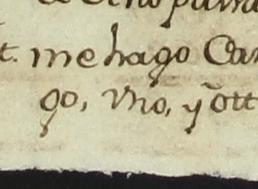 t. me hago Car
go, Vno, y ott